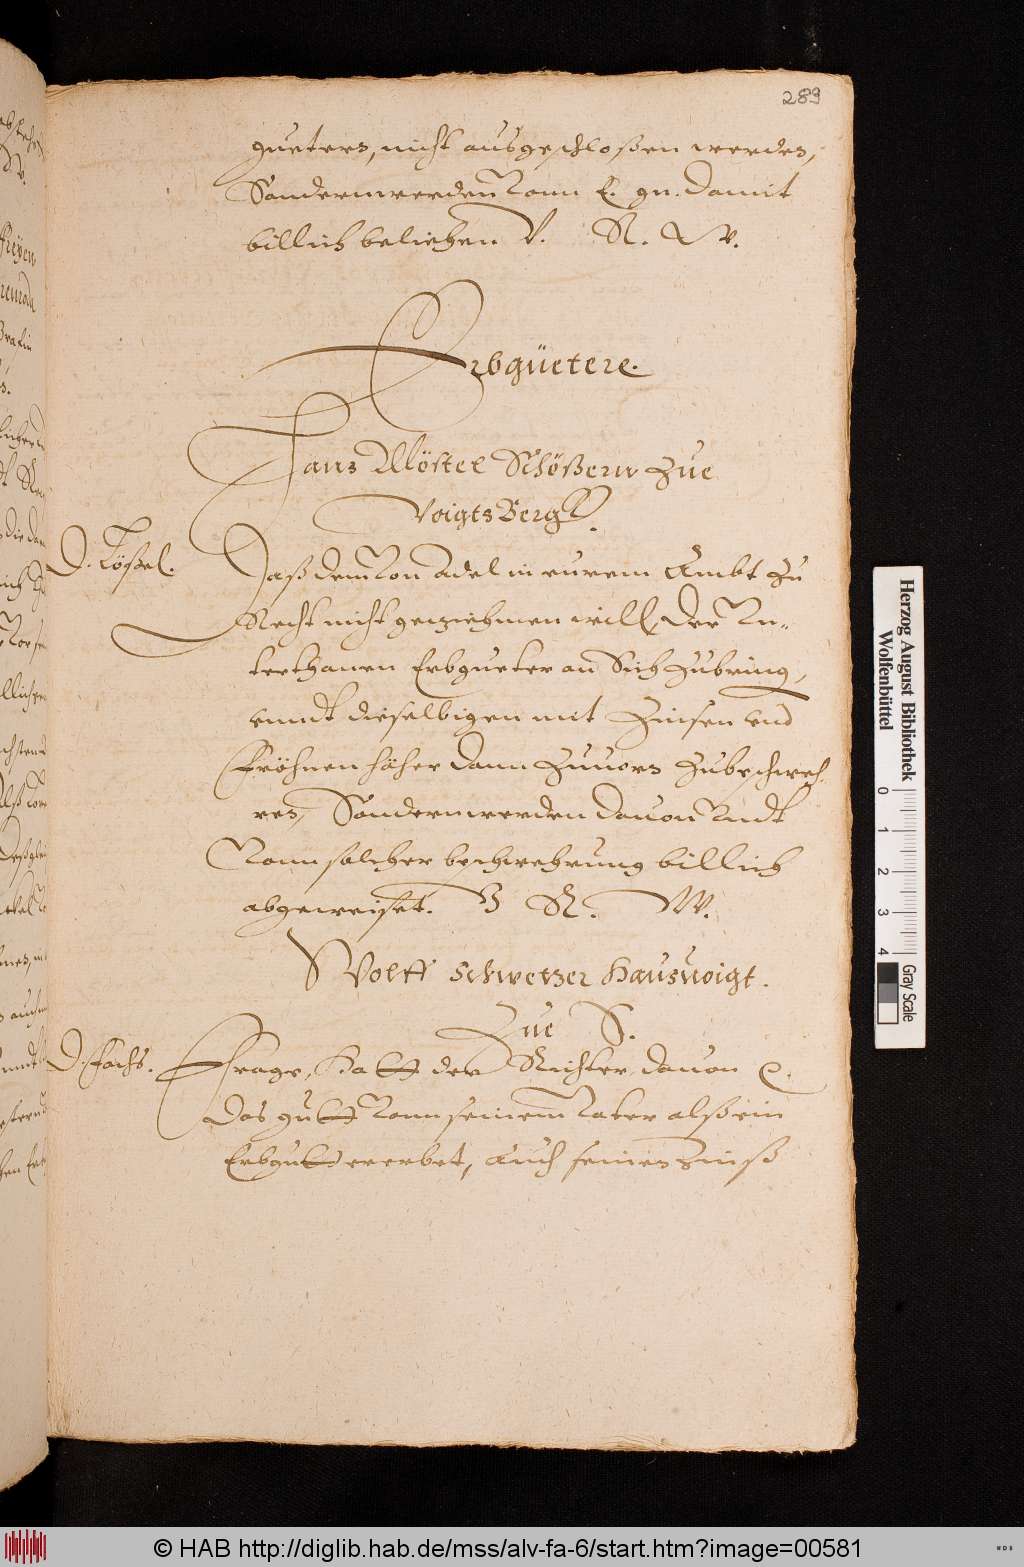 289
guetern, nicht ausgeschloßen werden,
Sondern werden Vonn E. gn. damit
billich beliehen V. R. W.
Erbgüetere.
Hans Möstel Schößern Zue
VoigtsBergk.
D. Tößel.
Daß dem Von Adel in eurem Ambt zu
Recht nicht geziehmen will, der Vn-
terthanen Erbgueter an Sich Zubring,
vnndt dieselbigen mit Zinsen vnd
Fröhnen höher dann Zuuorn Zubeschweh-
ren, Sondern werden dauon Vndt
Vonn solcher beschwehrung billich
abgeweiset. V R. W.
Wolff Schwetzer Hausuoigt.
Zue S.
D. Fachs.
Frage, Hatt der Richter dauon E.
das gutt Vonn seinem Vater alß ein
Erbgutt ererbet, Auch seinen Zinß
Herzog August Bibliothek
Wolfenbüttel
0 1 2 3 4
Gray Scale
© HAB http://diglib.hab.de/mss/alv-fa-6/start.htm?image=00581